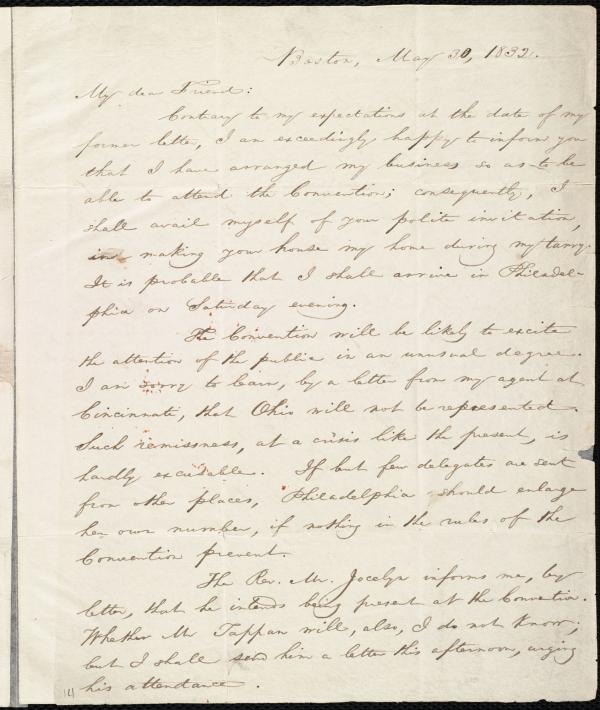 Boston, May 30, 1832.
My dear Friend:
Contrary to my expectations at the date of my
former letter, I am exceedingly happy to inform you
that I have arranged my business so as to be
able to attend the Convention; consequently, I
shall avail myself of your polite invitation,
in making your house my home during my tarry.
It is probable that I shall arrive in Philadel-
phia on Saturday evening.
The Convention will be likely to excite
the attention of the public in an unusual degree.
I am sorry to learn, by a letter from my agent at
Cincinnati, that Ohio will not be represented.
Such remissness, at a crisis like the present, is
hardly excusable. If but few delegates are sent
from other places, Philadelphia should enlarge
her own number, if nothing in the rules of the
Convention prevent.
The Rev. Mr. Jocelyn informs me, by
letter, that he intends being present at the Convention.
Whether Mr Tappan will, also, I do not know;
but I shall send him a letter this afternoon, urging
his attendance.